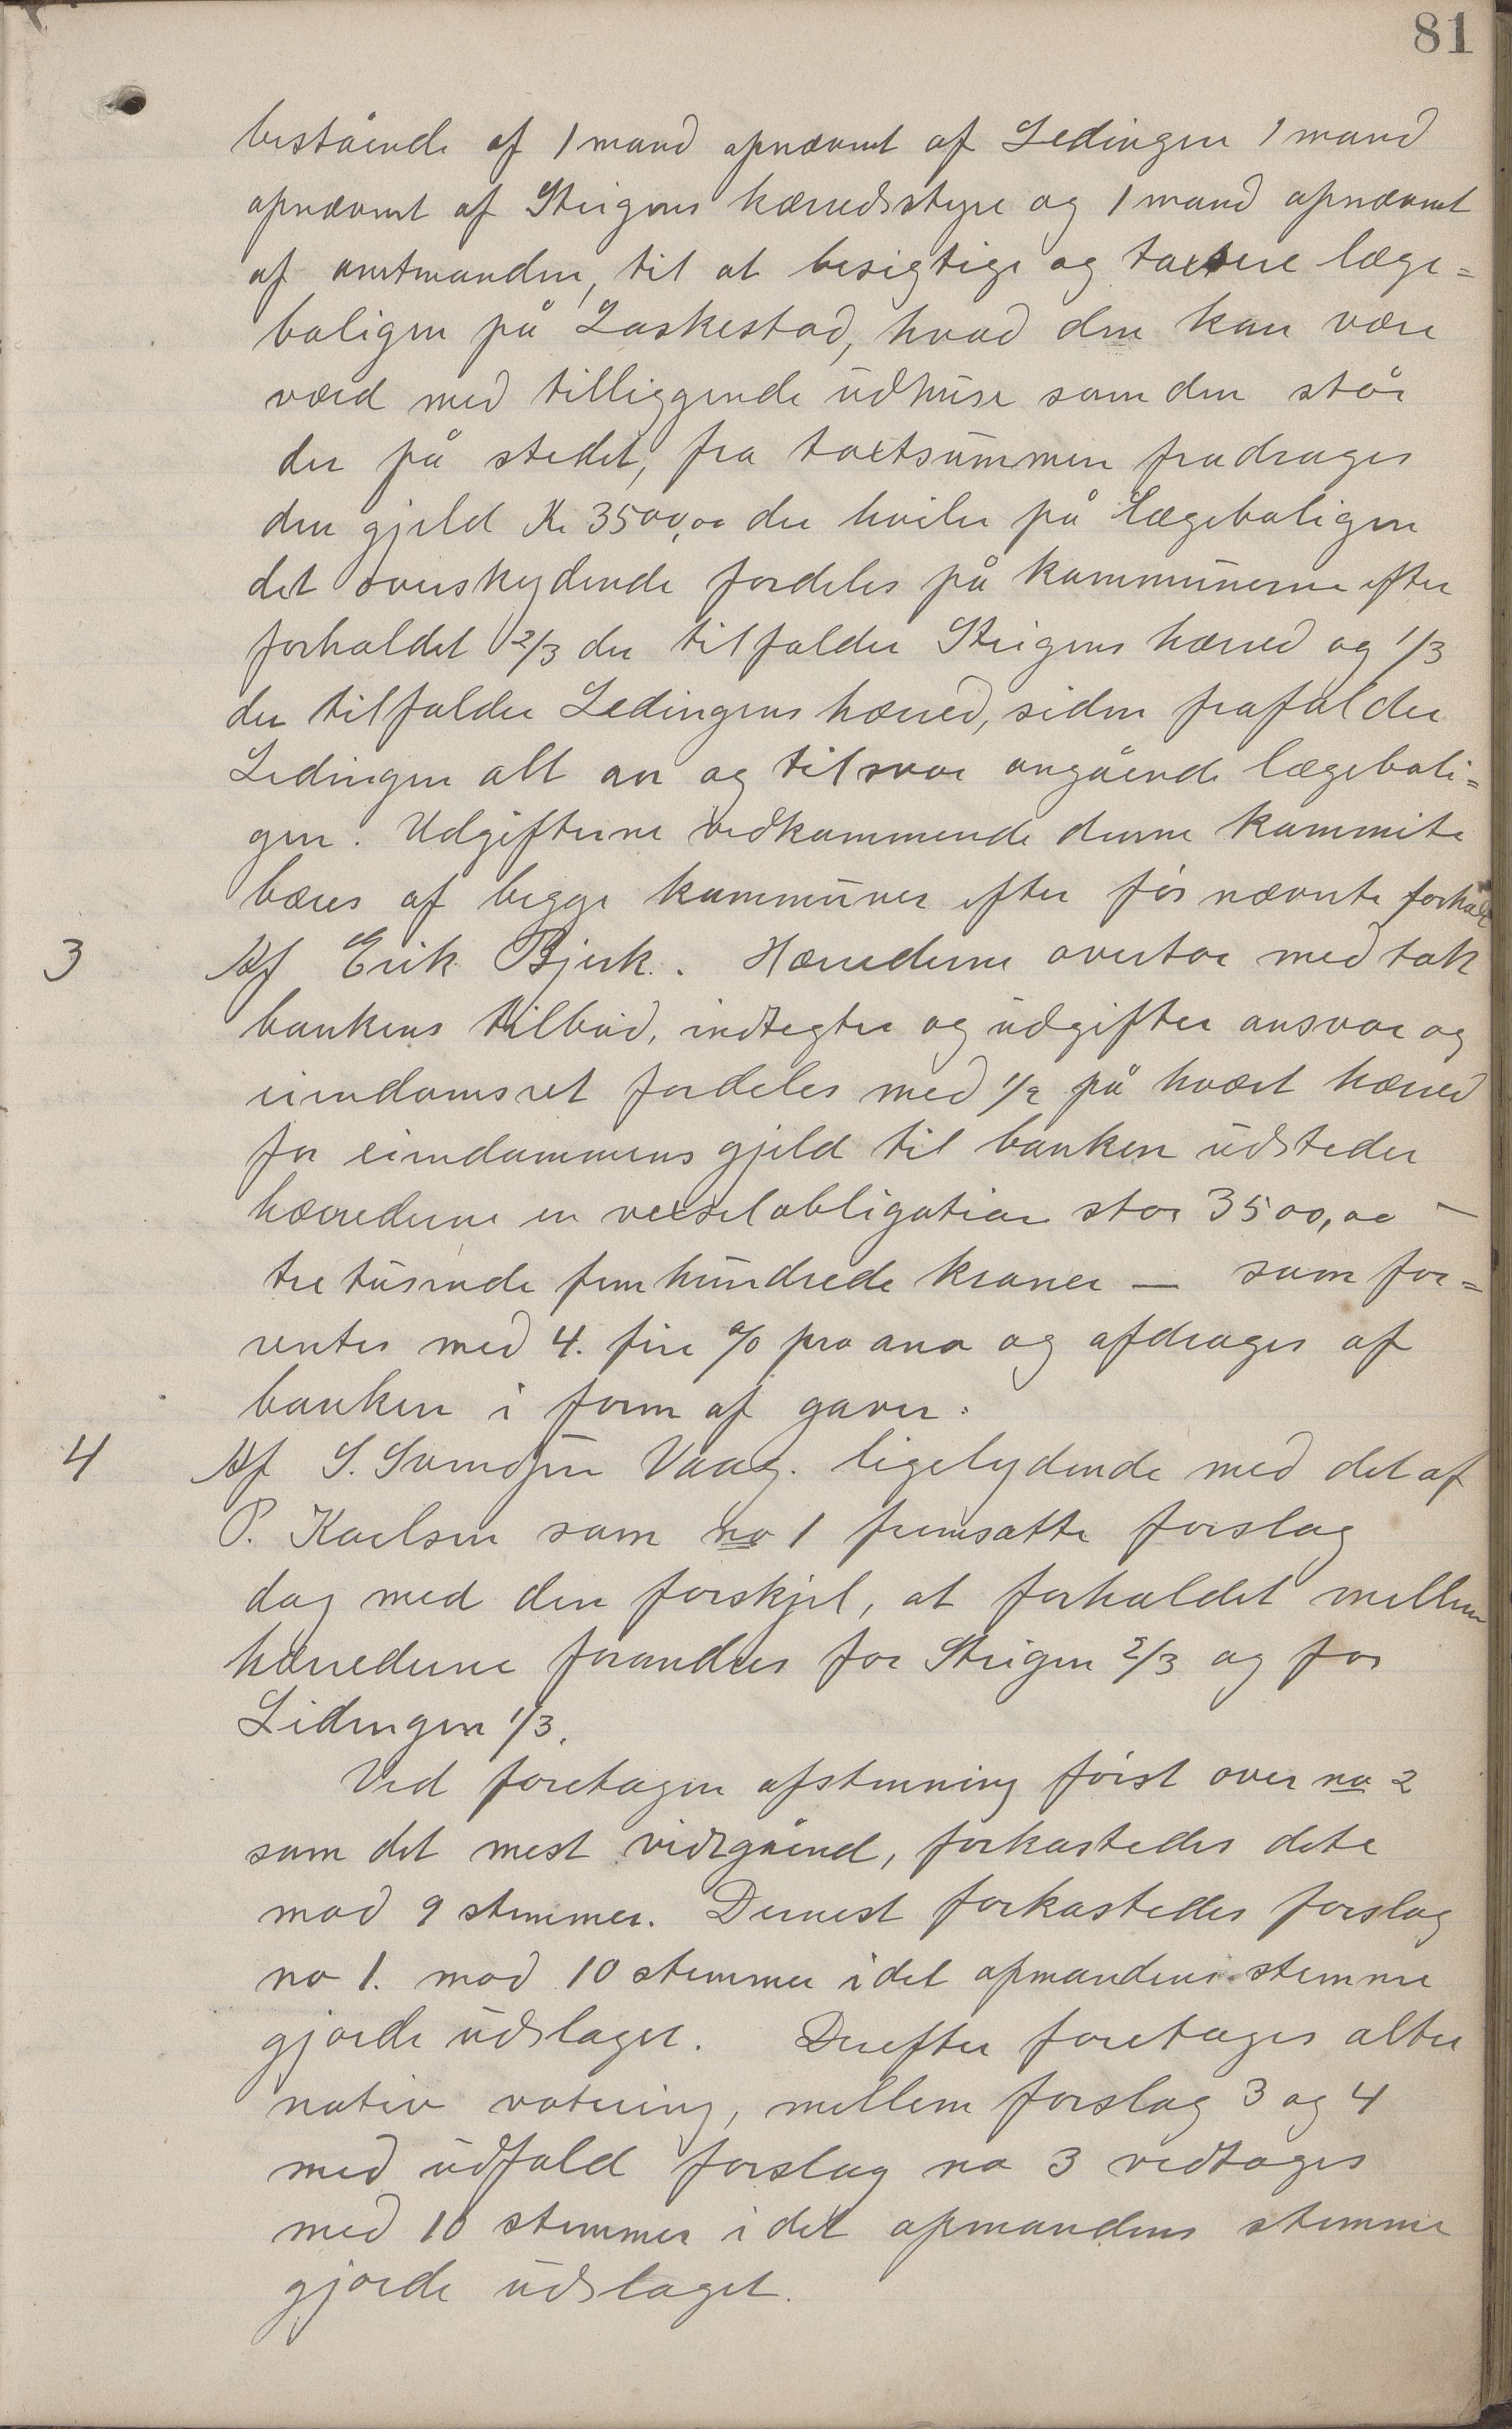 81
bestående af 1 mand opnævnt af Ledingen 1 mand
opnævnt af Steigens hærredsstyre og 1 mand opnævnt
af amtmanden, til at besigtige og taxere læge=
boligen på Laskestad, hvad den kan være
værd med tilliggende udhuse som den står
der på stedet, fra taxtsummen fradrages
den gjeld Kr 3500,00 der hviler på lægeboligen
det overskydende fordeles på kommunerne efter
forholdet 2/3 der tilfalder Steigens hærred og 1/3
der tilfalder Ledingens hærred, siden frafalder
Ledingen alt an og tilsvar angående lægeboli=
gen. Udgifterne vedkommende denne kommite
bæres af begge kommuner efter før nævnte forhold
3 Af Erik Bjerk. Hærrederne overtar med tak
bankens tilbud, indtegter og udgifter ansvar og
eiendomsret fordeles med 1/2 på hvært hærred
for eiendommens gjeld til banken udsteder
hærrederne en vexselobligation stor 3500,00 —
tre tusinde fem hundrede kroner — som for=
rentes med 4. fire % pro ano og afdrages af
banken i form af gaver.
4 Af S. Svendsen Vaag. ligelydende med det af
P. Karlsen som no 1 fremsatte forslag
dog med den forskjel, at forholdet mellem
hærrederne forandres for Steigen 2/3 og for
Lidingen 1/3.
Ved foretagen afstemning først over no 2
som det mest vidtgåend, forkastedes dete
mod 9 stemmer. Dernest forkastedes forslag
no 1. mod 10 stemmer idet opmandens stemme
gjorde udslaget. Derefter foretages alter
nativ votering, mellem forslag 3 og 4
med udfald forslag no 3 vedtages
med 10 stemmer idet opmandens stemme
gjorde udslaget.